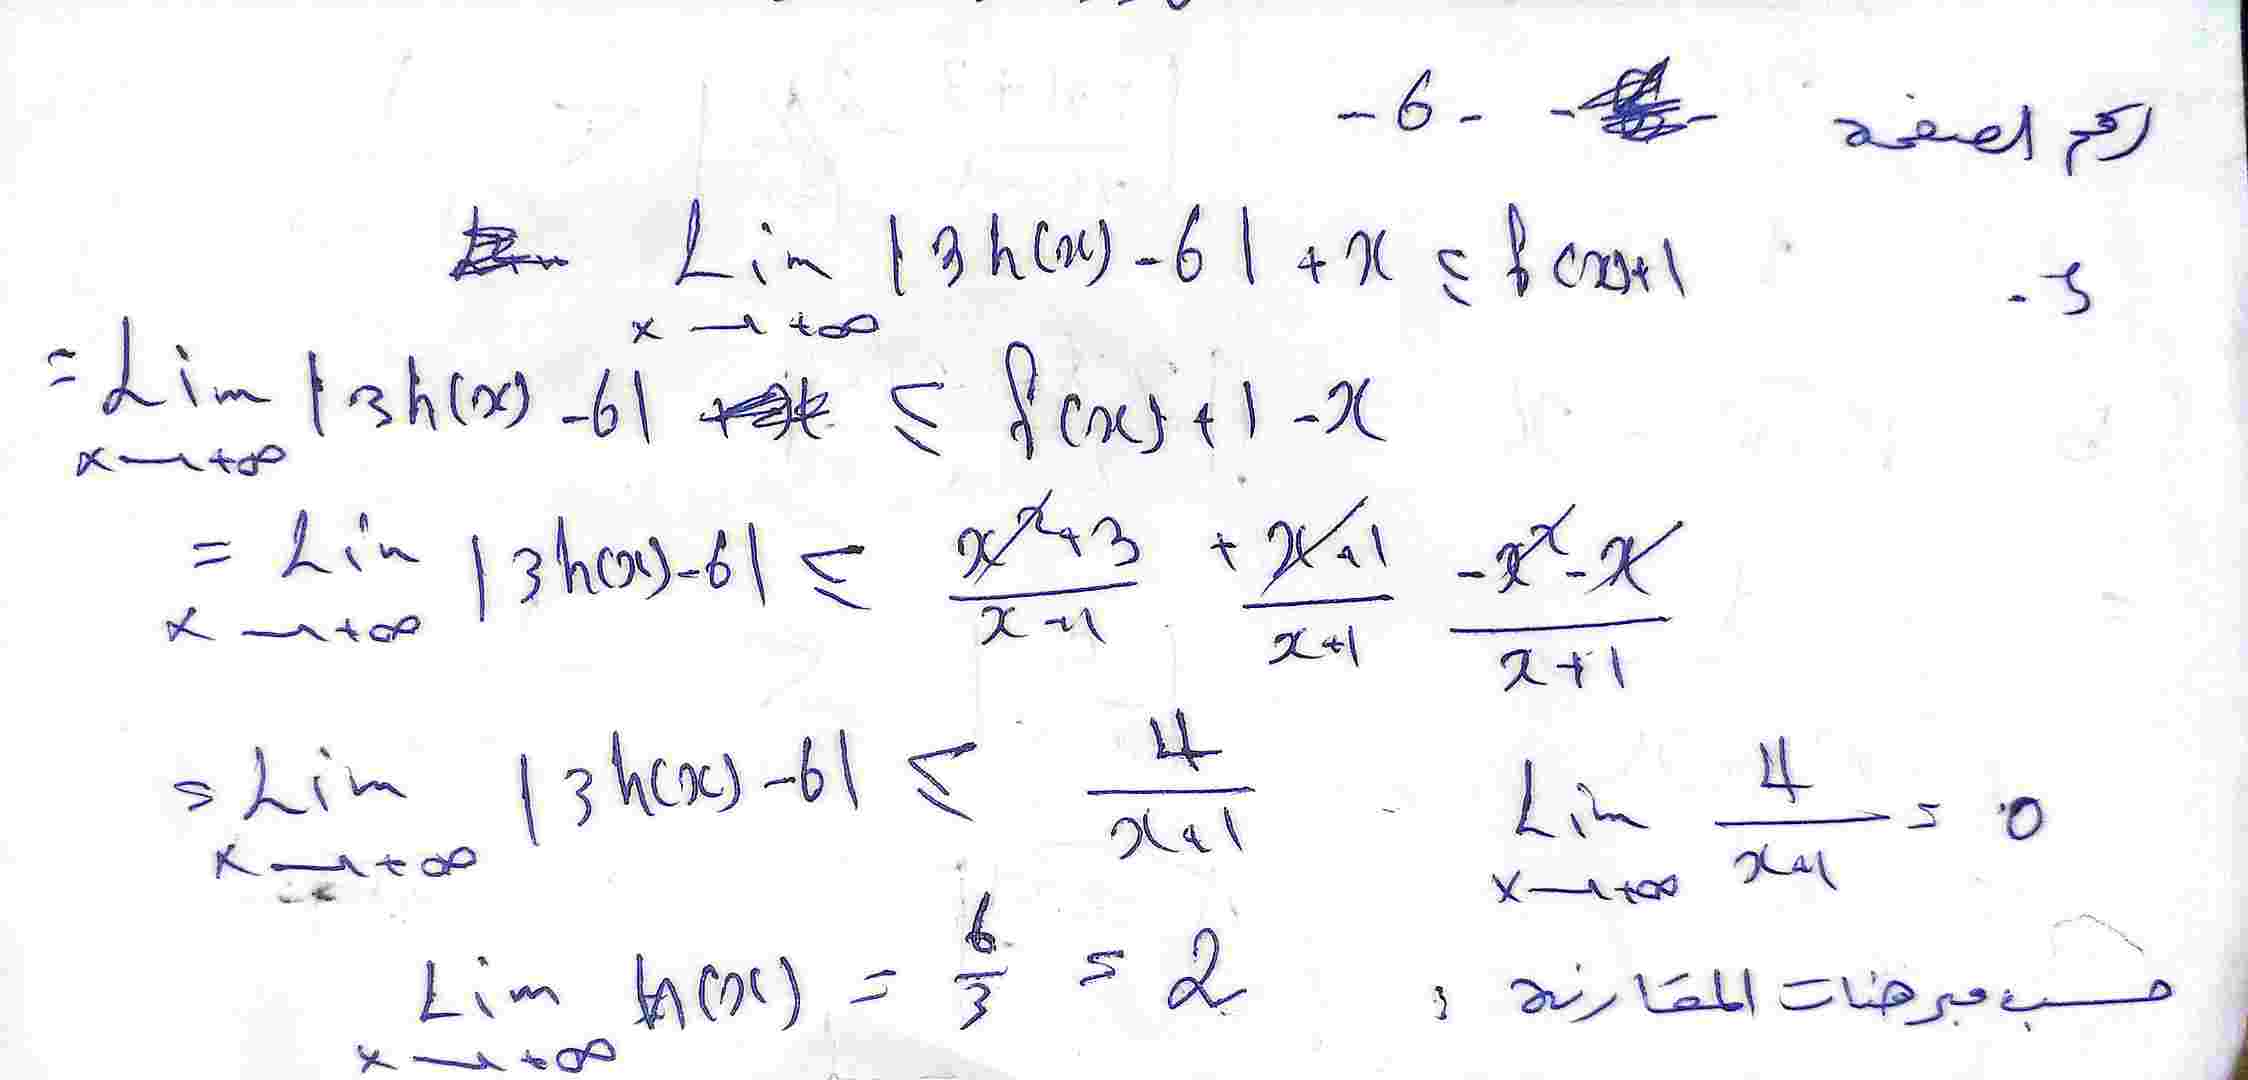 رقم الصفحة -6-
5- Lim |3h(x)-6| + x ≤ f(x)+1
x → +∞
= Lim |3h(x)-6| ≤ f(x)+1-x
x → +∞
= Lim |3h(x)-6| ≤ x²+3/x+1 + x+1/x+1 -x²-x/x+1
x → +∞
= Lim |3h(x)-6| ≤ 4/x+1 Lim 4/x+1 = 0
x → +∞ x → +∞
حسب مبرهنات المقارنة : Lim h(x) = 6/3 = 2
x → +∞